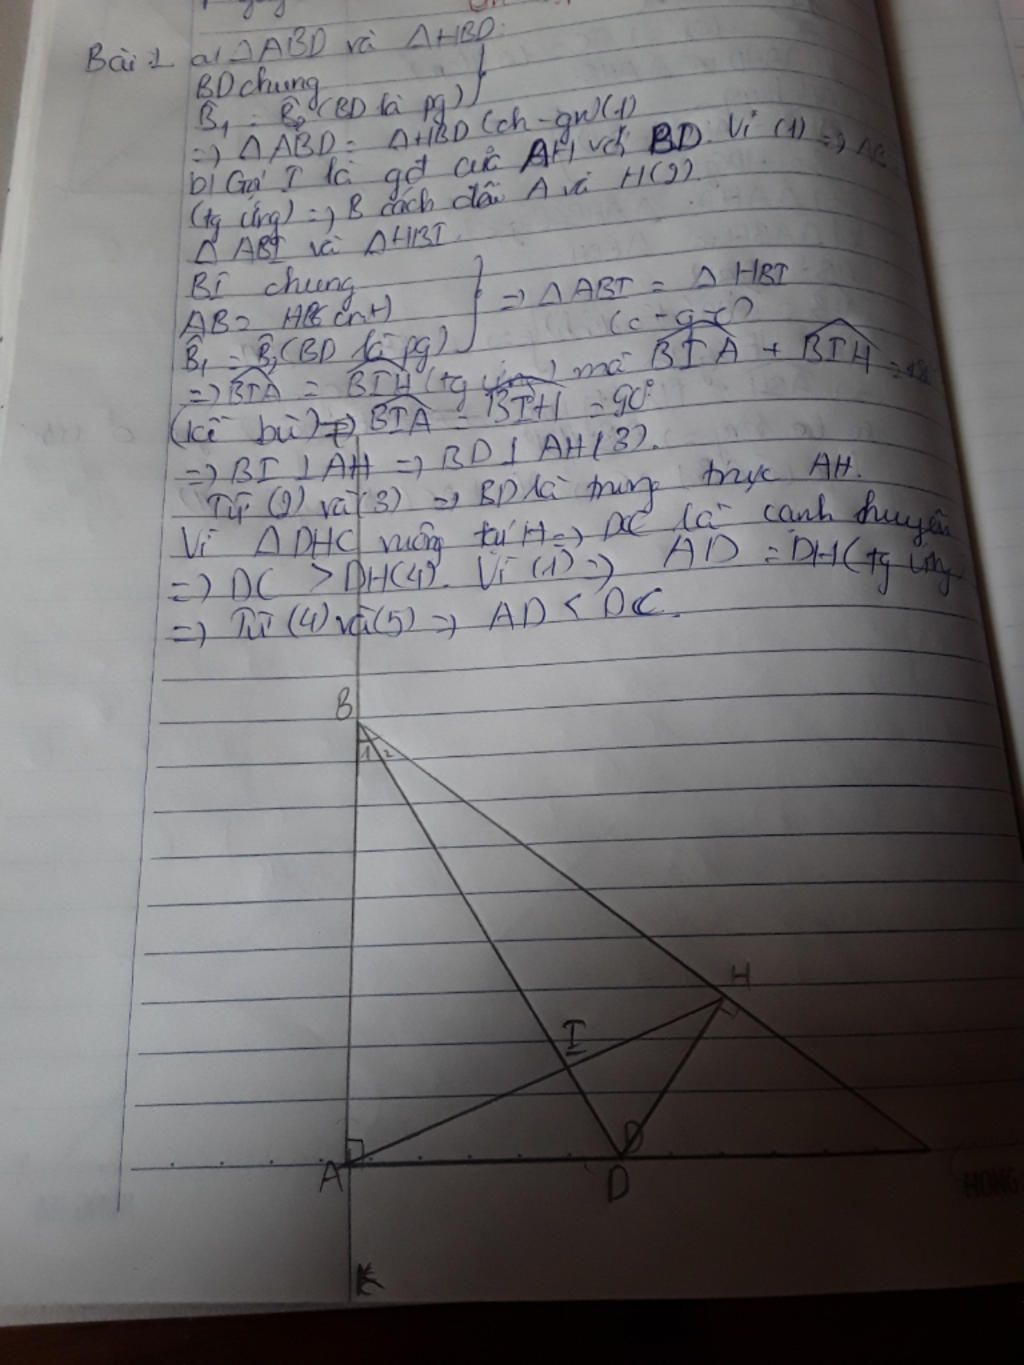 Bài 1 a) ΔABD và ΔHBD:
BD chung
B̂₁ = B̂₂ (BD là pg)
=> ΔABD = ΔHBD (ch - gn) (1)
b) Gọi I là gđ của AH với BD. Vì (1) =>
(tg ứng) => B cách đều A và H (2).
ΔABI và ΔHBI.
BI chung
AB = HB (cmt)
=> ΔABI = ΔHBI
B̂₁ = B̂₂ (BD là pg)
(c - g - c)
=> BIA = BIH (tg ứng) mà BIA + BIH =
(kề bù) => BIA = BIH = 90°
=> BI ⊥ AH => BD ⊥ AH (3).
Từ (2) và (3) => BD là trung trực AH.
Vì ΔDHC vuông tại H => DC là cạnh huyền
=> DC > DH (4). Vì (1) => AD = DH (tg ứng
=> Từ (4) và (5) => AD < DC.
B
1 2
H
I
D
A
D
K
HONG